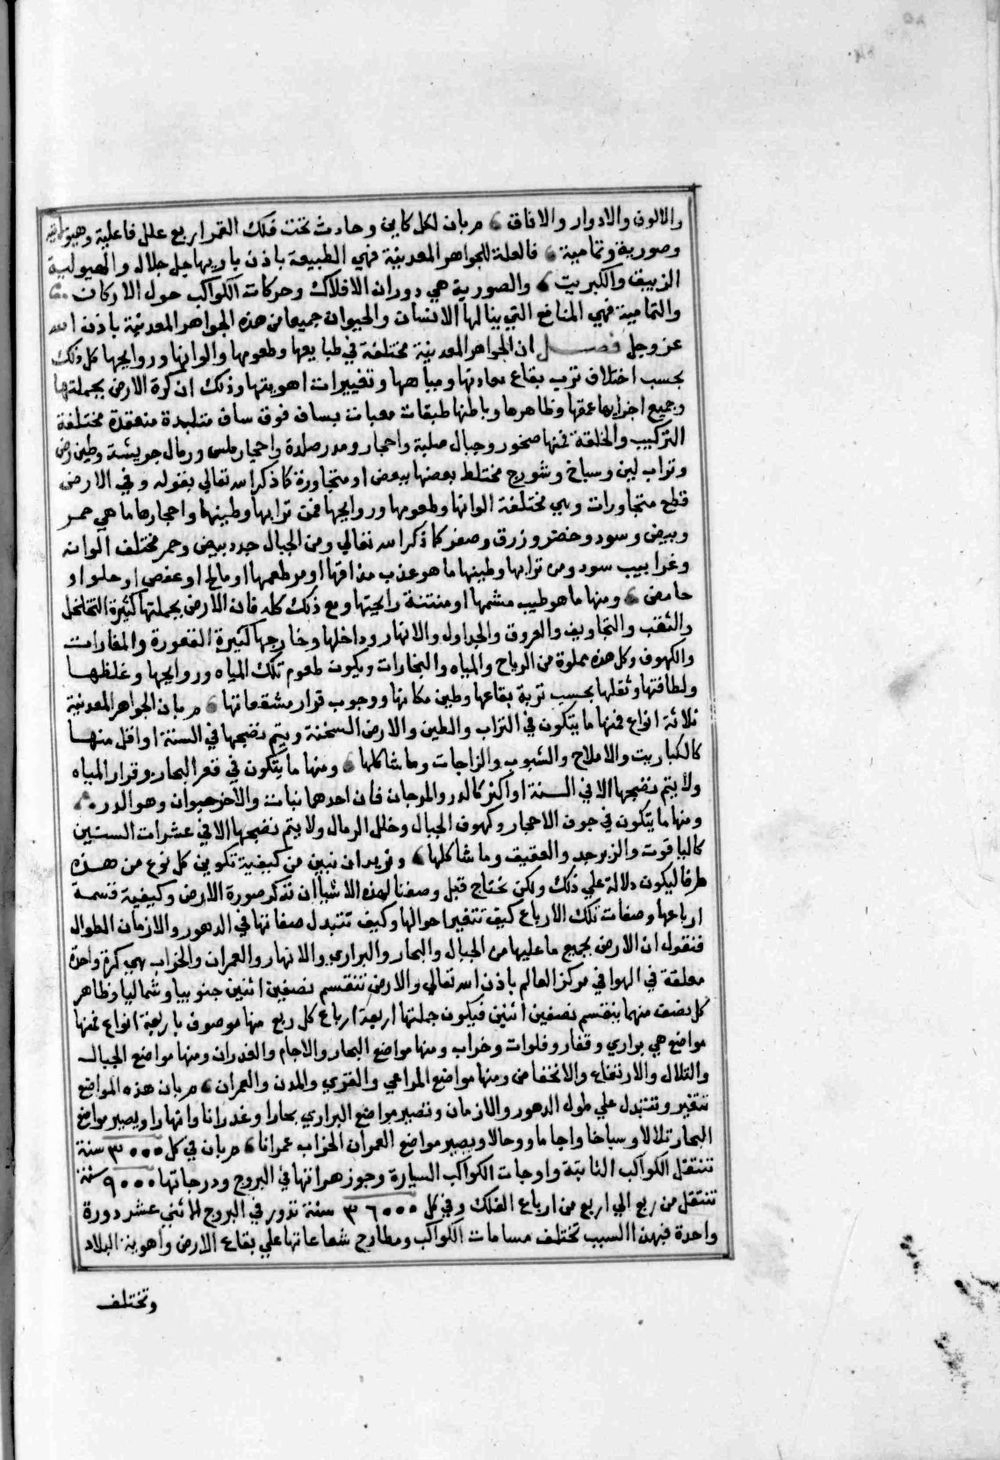 والالون والادوار والافاق مربان لكل كاين وحادث تحت فلك القمر اربع علل فاعلية وهيولانية
وصورية وتمامية فالعلة للجواهر المعدنية فهي الطبيعة باذن باريها جل جلاله والهيولية
الزيبق والكبريت والصورية هي دوران الافلاك وحركات الكواكب حول الاركان
والتمامية فهي المنافع التي ينالها الانسان والحيوان جميعا من هذه الجواهر المعدنية باذن الله
عز وجل فصل ان الجواهر المعدنية مختلفة في طبايعها وطعومها والوانها وروايحها كل ذلك
بحسب اختلاف ترب بقاع معادنها ومياهها وتغييرات اهويتها وذلك ان كرة الارض بجملتها
وجميع اجزايها عمقها وظاهرها وباطنها طبقات معبات بساف فوق ساف متلبدة منعقدة مختلفة
التركيب والخلقة فمنها صخور وجبال صلبة واحجار ومدر صلدة واحجار ملس ورمال جريشة وطين رخو
وتراب لين وسباخ وشورج مختلط بعضها ببعض او متجاورة كما ذكر الله تعالي بقوله وفي الارض
قطع متجاورات وهي مختلفة الوانها وطعومها وروايحها فمن ترابها وطينها واحجارها ما هي حمر
وبيض وسود وخضر وزرق وصفر كما ذكر الله تعالي ومن الجبال جدد بيض وحمر مختلف الوانه
وغرابيب سود ومن ترابها وطينها ما هو عذب مذاقها او مر طعمها او مالح او عفص او حلو او
حامض ومنها ما هو طيب مشمها او منتنة رايحتها ومع ذلك كله فان الارض بجملتها كثيرة التخلخل
والثقب والتجاويف والعروق والجداول والانهار وداخلها وخارجها كثيرة القعورة والمغارات
والكهوف وكل هذه مملوة من الرياح والمياه والبخارات ويكون طعوم تلك المياه وروايحها وغلظها
ولطافتها وثقلها بحسب تربة بقاعها وطين مكانها ووجوب قرار مشقعاتها مربان الجواهر المعدنية
ثلاثة انواع فمنها ما يتكون في التراب والطين والارض السخنة ويتم نضجها في السنة او اقل منها
كالكباريت والاملاح والشبوب والزاجات وما شاكلها ومنها ما يتكون في قعر البحار وقرار المياه
ولا يتم نضجها الا في السنة او اكثر كالدر والمرجان فان احدهما نبات والاخر حيوان وهو الدر
ومنها ما يتكون في جوف الاحجار وكهوف الجبال وخلل الرمال ولا يتم نضجها الا في عشرات السنين
كالياقوت والزبرجد والعقيق وما شاكلها ونريد ان نبين من كيفية تكوين كل نوع من هذه
طرفا ليكون دلالة علي ذلك ولكن نحتاج قبل وصفنا لهذه الاشيا ان نذكر صورة الارض وكيفية قسمة
ارباعها وصفات تلك الارباع كيف تتغير احوالها وكيف تتبدل صفاتها في الدهور والازمان الطوال
فنقول ان الارض بجميع ما عليها من الجبال والبحار والبراري والانهار والعمران والخراب هي كرة واحدة
معلقة في الهوا في مركز العالم باذن الله تعالي والارض تنقسم نصفين اثنين جنوبيا وشماليا وظاهر
كل نصف منهما ينقسم نصفين اثنين فيكون جملتها اربعة ارباع كل ربع منها موصوف باربعة انواع فمنها
مواضع هي براري وقفار وفلوات وخراب ومنها مواضع البحار والاجام والغدران ومنها مواضع الجبال
والتلال والارتفاع والانخفاض ومنها مواضع المراعي والقري والمدن والعمران مربان هذه المواضع
تتغير وتتبدل علي طول الدهور والازمان وتصير مواضع البراري بحارا وغدرانا وانهارا ويصير مواضع
البحار تلالا وسباخا واجاما ووحالا ويصير مواضع العمران الخراب عمرانا مربان في كل ٣٠٠٠ سنة
تنتقل الكواكب الثابتة واوجات الكواكب السيارة وجوزهراتها في البروج ودرجاتها ٩٠٠٠ سنة
تنتقل من ربع الي اربع من ارباع الفلك وفي كل ٣٦٠٠٠ سنة تدور في البروج الاثني عشر دورة
واحدة فبهذا السبب تختلف مسامات الكواكب ومطارح شعاعاتها علي بقاع الارض واهوية البلاد
وتختلف